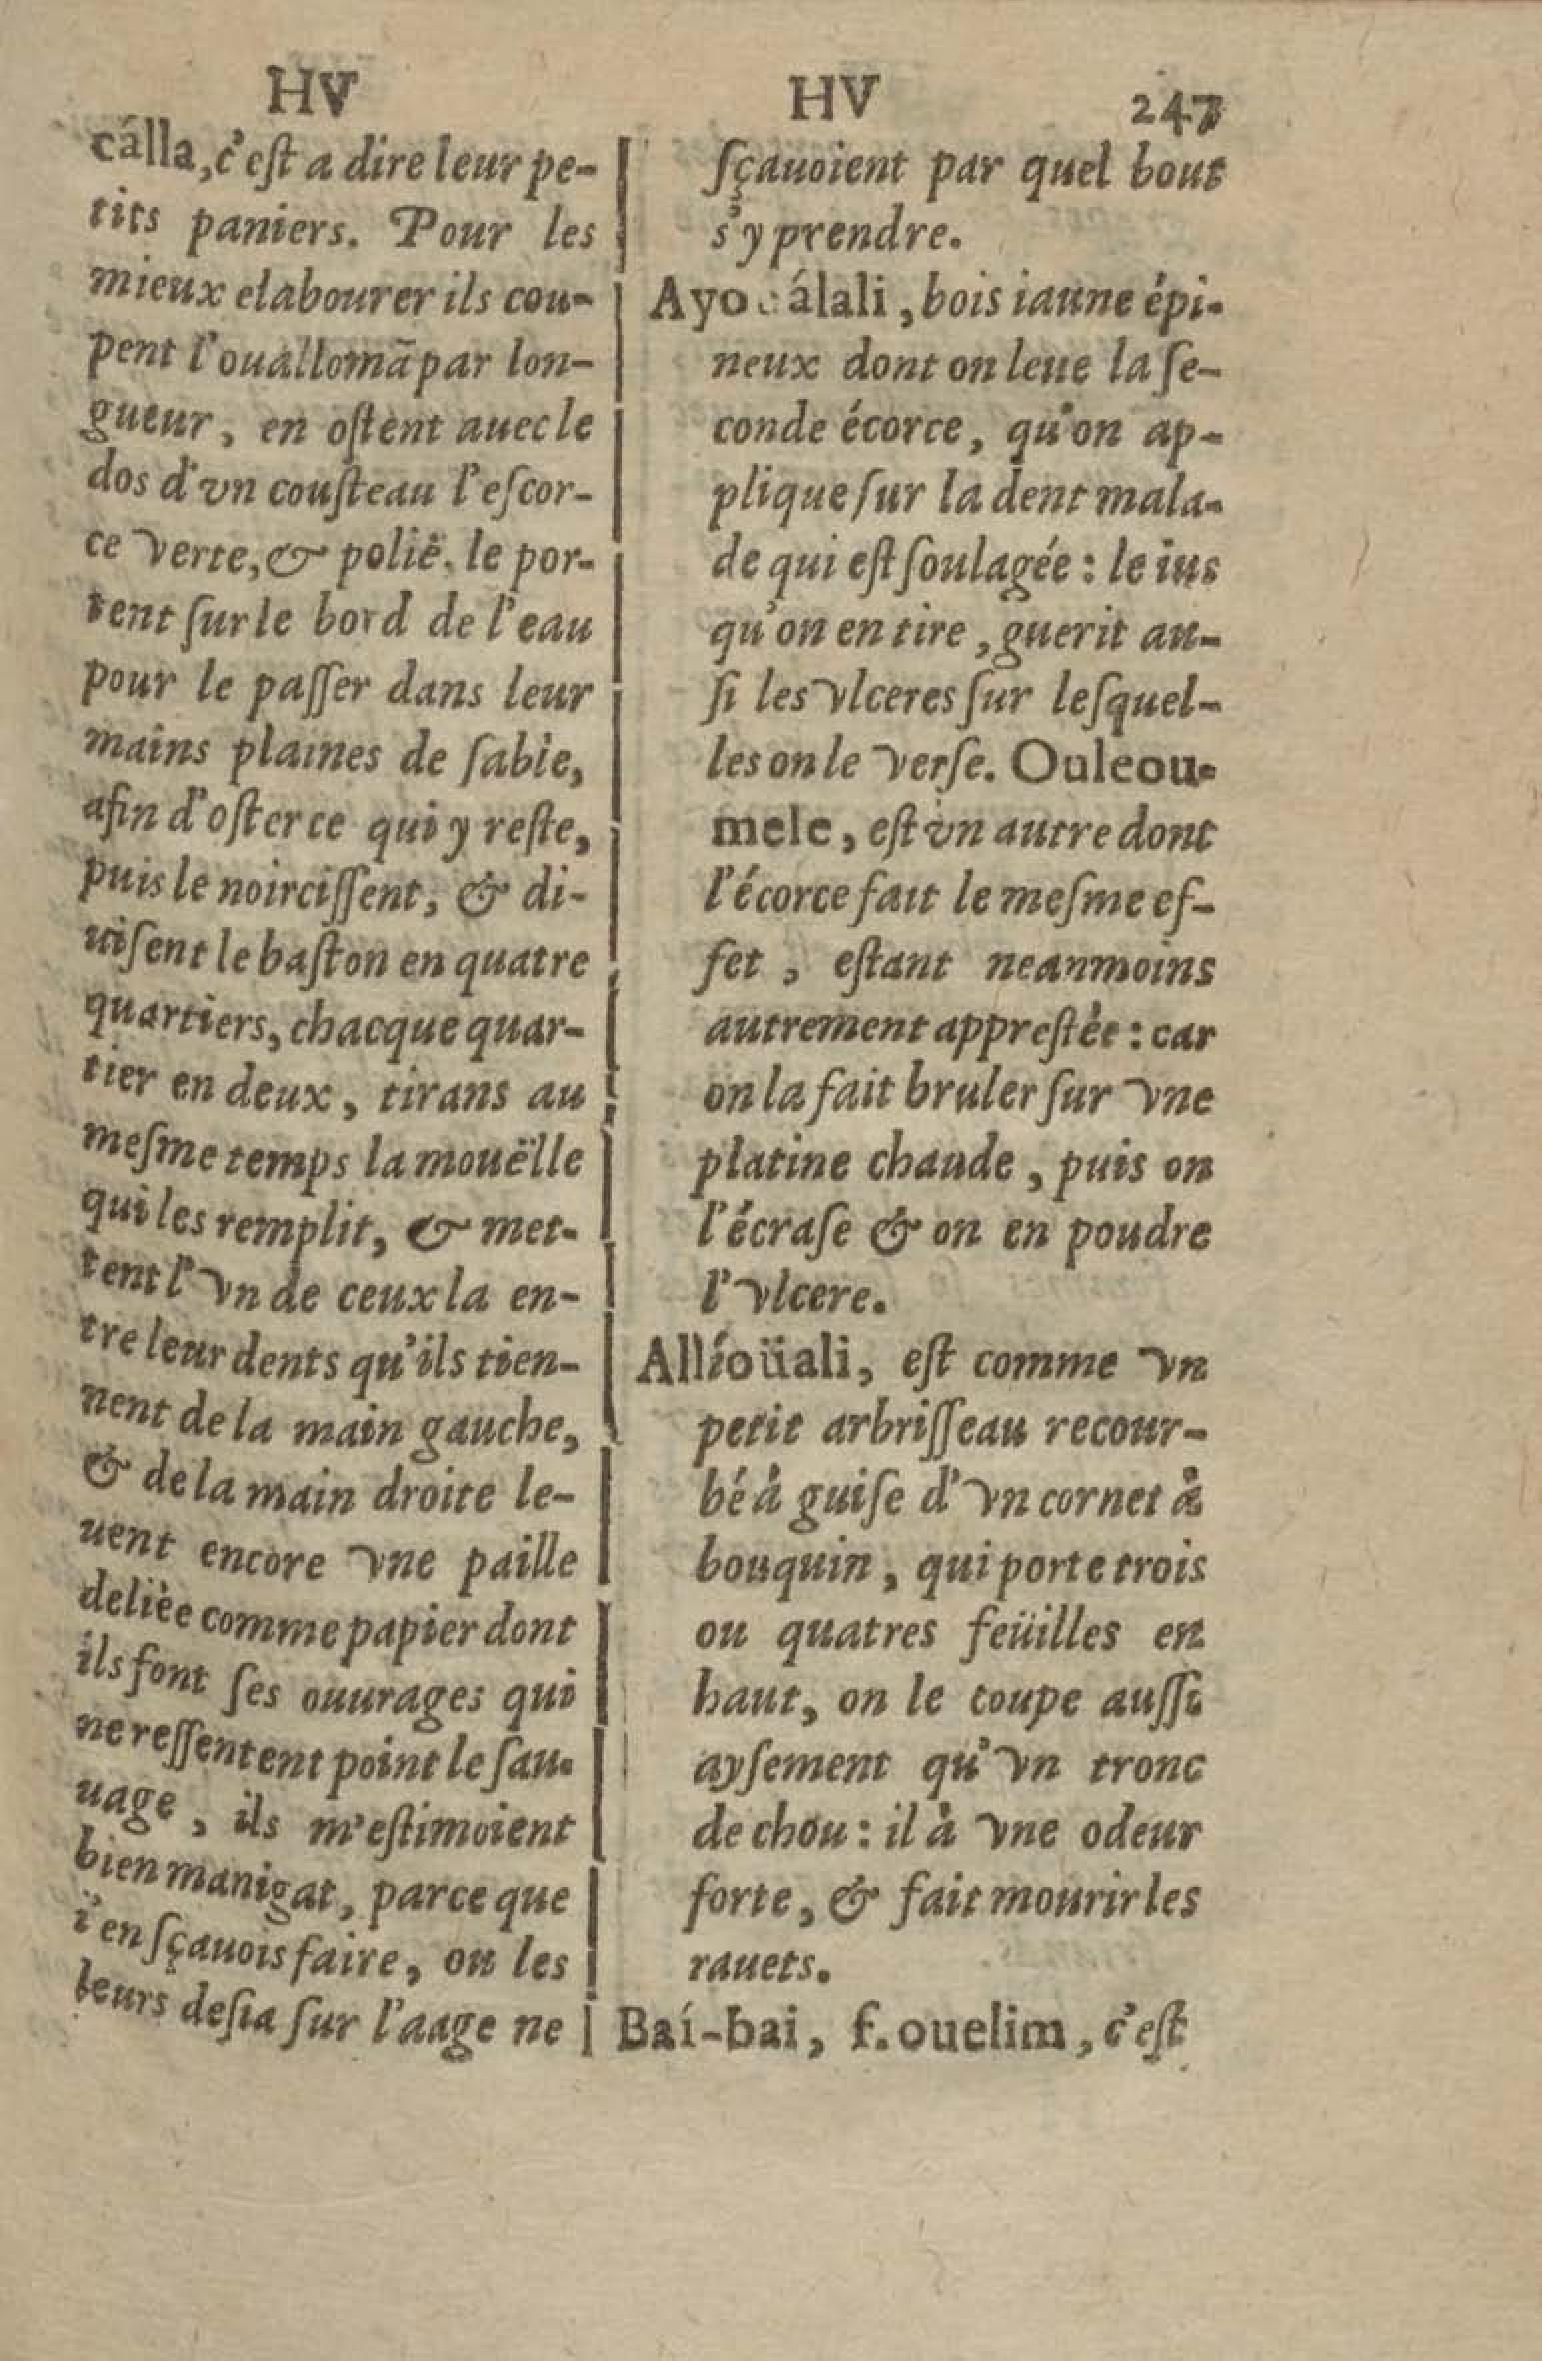 HV
cálla, c'eſt a dire leur pe-
tits paniers. Pour les
mieux elabourer ils cou-
pent l'ouallomã par lon-
gueur, en oſtent auec le
dos d'vn couſteau l'eſcor-
ce verte, & polië. le por-
tent ſur le bord de l'eau
pour le paſſer dans leur
mains plaines de ſable,
afin d'oſter ce qui y reſte,
puis le noirciſſent, & di-
uiſent le baſton en quatre
quartiers, chacque quar-
tier en deux, tirans au
meſme temps la mouëlle
qui les remplit, & met-
tent l'vn de ceux la en-
tre leur dents qu'ils tien-
nent de la main gauche,
& de la main droite le-
uent encore vne paille
delièe comme papier dont
ils font ſes ouurages qui
ne reſſentent point le ſau-
uage, ils m'eſtimoient
bien manigat, parce que
i'en ſçauois faire, ou les
leurs deſia ſur l'aage ne
HV 247
ſçauoient par quel bout
s'y prendre.
Ayo álali, bois iaune épi-
neux dont on leue la ſe-
conde écorce, qu'on ap-
plique ſur la dent mala-
de qui eſt ſoulagée : le ius
qu'on en tire, guerit au-
ſi les vlceres ſur leſquel-
les on le verſe. Ouleou-
mele, eſt vn autre dont
l'écorce fait le meſme ef-
fet, eſtant neanmoins
autrement appreſtée : car
on la fait bruler ſur vne
platine chaude, puis on
l'écraſe & on en poudre
l'vlcere.
Allíoüali, eſt comme vn
petit arbriſſeau recour-
bé à guiſe d'vn cornet à
bouquin, qui porte trois
ou quatres feüilles en
haut, on le coupe auſſi
ayſement qu'vn tronc
de chou : il à vne odeur
forte, & fait mourir les
rauets.
Baí-bai, f. ouelim, c'eſt